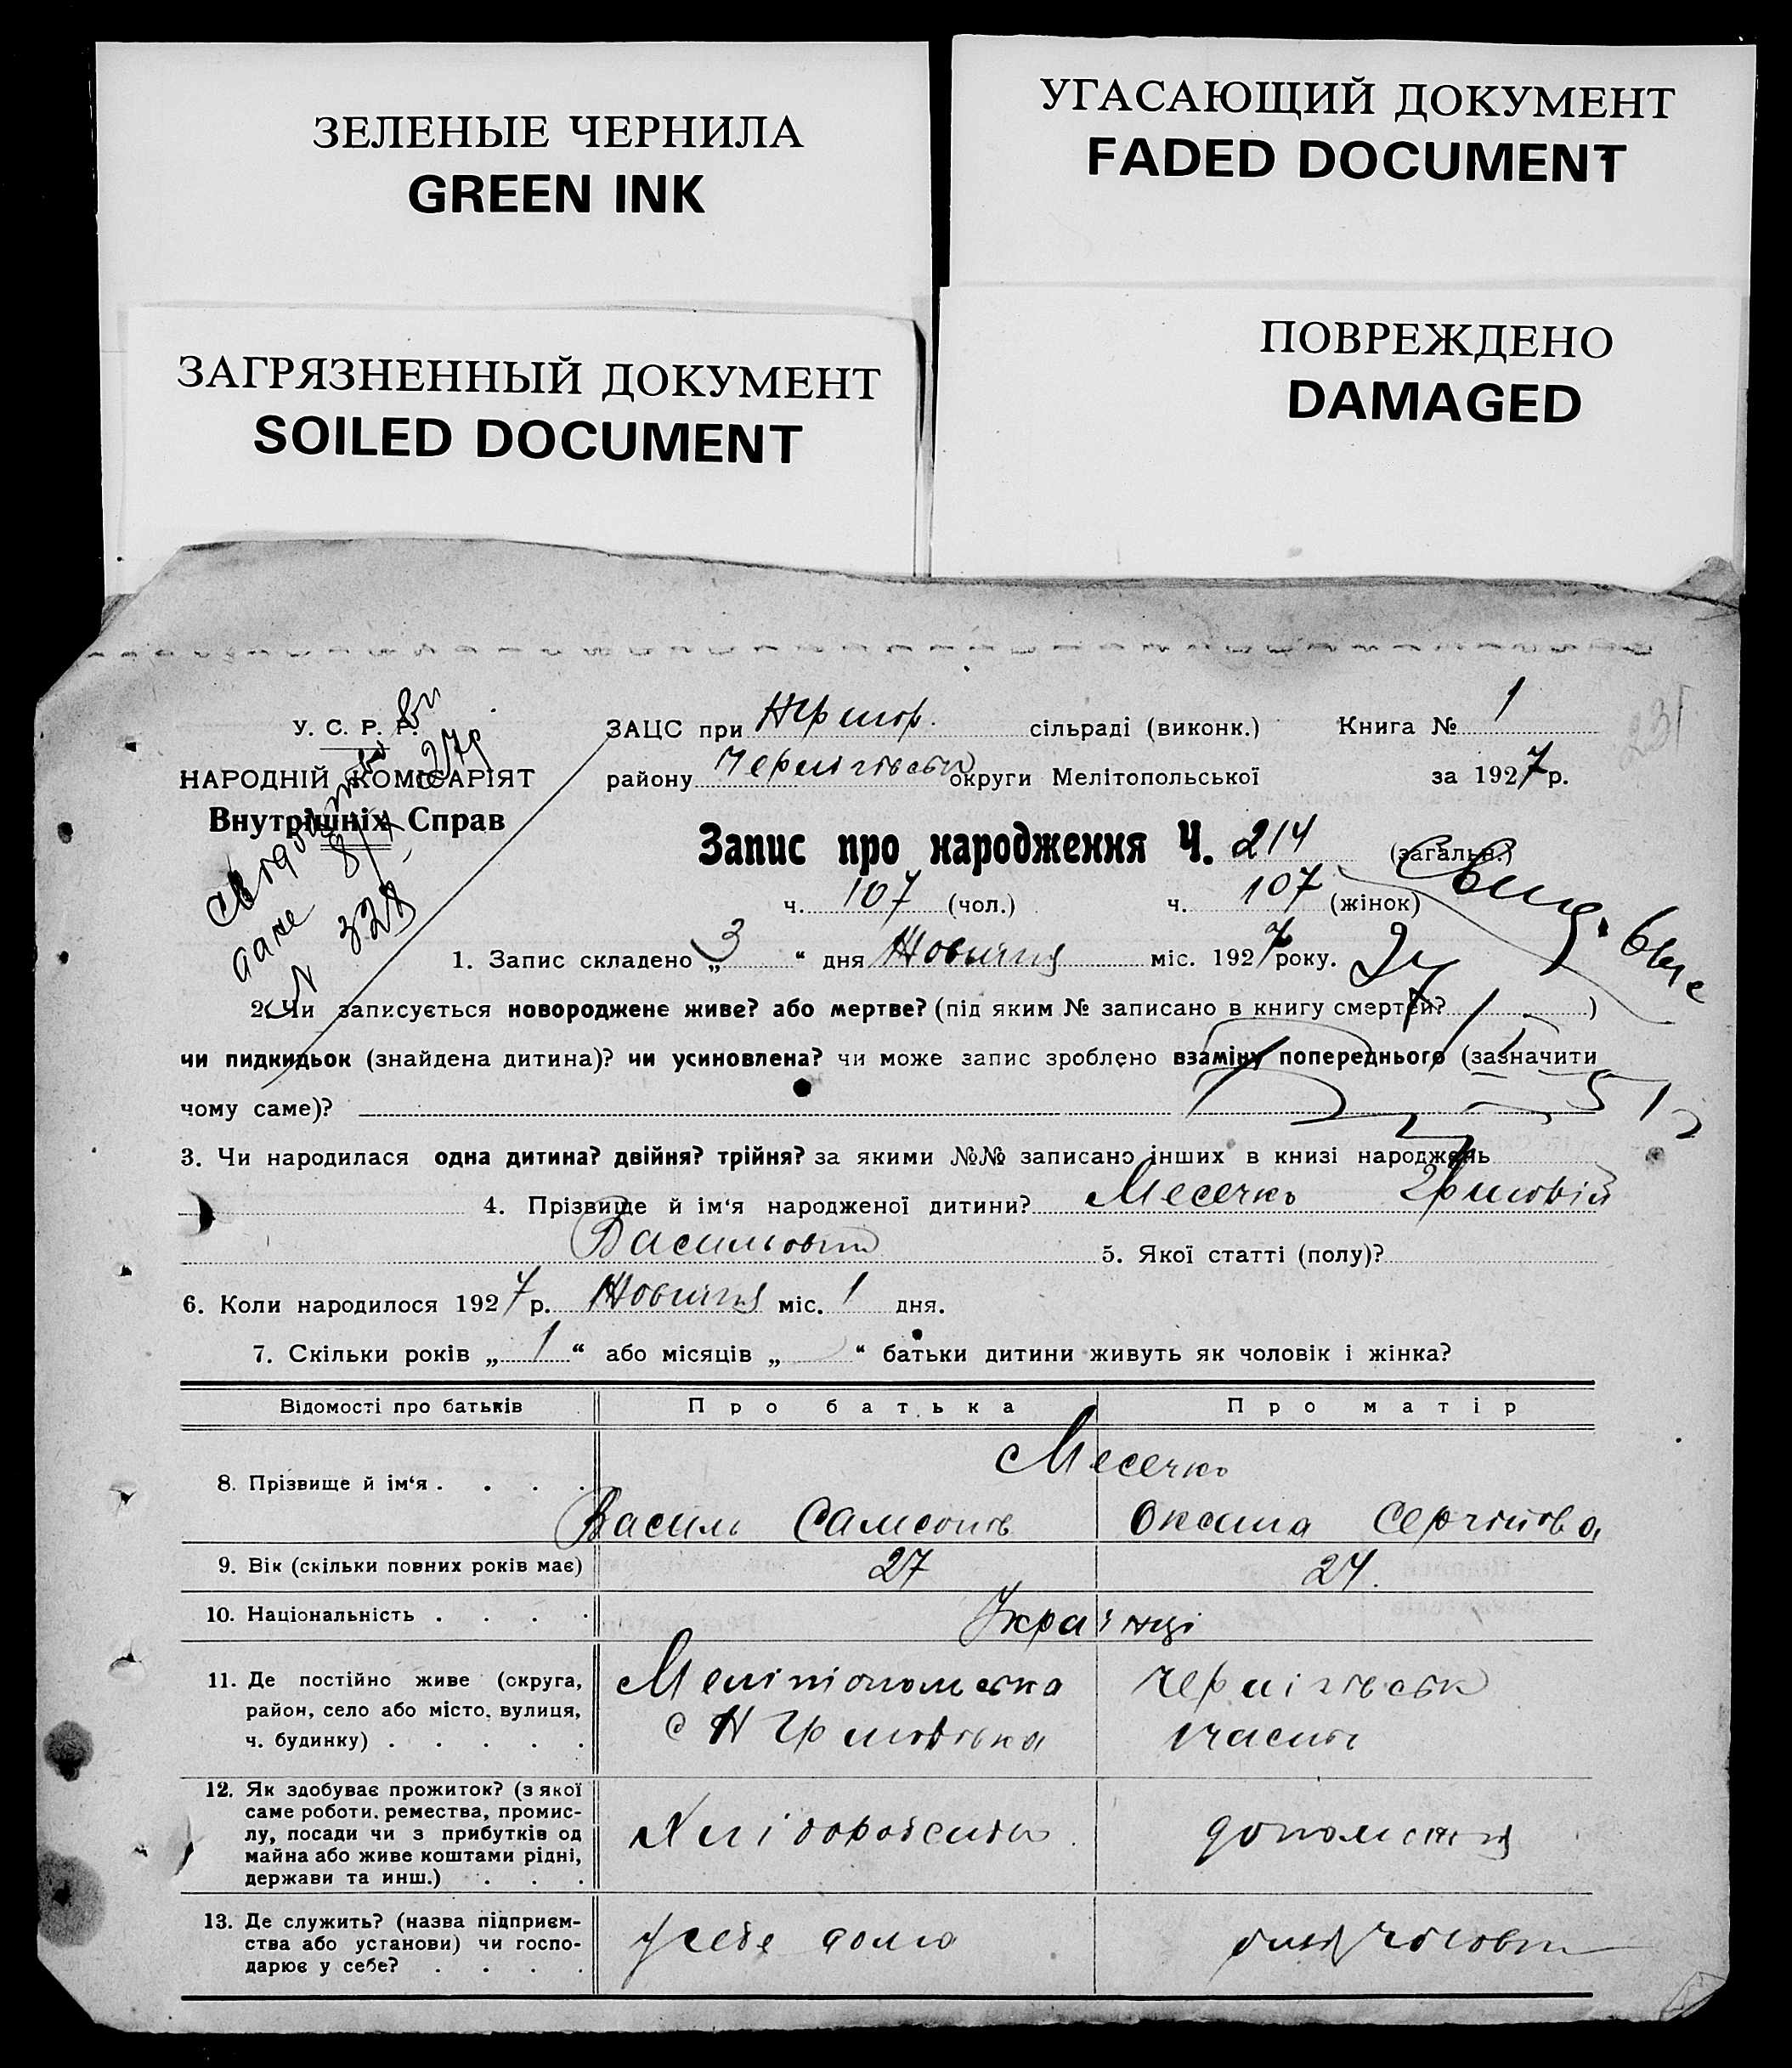 ЗЕЛЕНЫЕ ЧЕРНИЛА
GREEN INK
УГАСАЮЩИЙ ДОКУМЕНТ
FADED DOCUMENT
ЗАГРЯЗНЕННЫЙ ДОКУМЕНТ
SOILED DOCUMENT
ПОВРЕЖДЕНО
DAMAGED
231
У. С. Р. Р.
НАРОДНІЙ КОМІСАРІЯТ
Внутрішніх Справ
N 328
ЗАЦС при сільраді (виконк.) Книга № 1
району Чернігівськ округи Мелітопольської за 1927 р.
Запис про народження Ч. 214 (загальн.)
ч. 107 (чол.) ч. 107 (жінок)
1. Запис складено „ 3 “ дня Жовтня міс. 1927 року.
2. Чи записується новороджене живе? або мертве? (під яким № записано в книгу смертей? )
чи пидкидьок (знайдена дитина)? чи усиновлена? чи може запис зроблено взаміну попереднього (зазначити
чому саме)?
3. Чи народилася одна дитина? двійня? трійня? за якими №№ записано інших в книзі народжень
4. Прізвище й ім‘я народженої дитини? Месечко
Васильович 5. Якої статті (полу)?
6. Коли народилося 1927 р. Жовтня міс. 1 дня.
7. Скільки років „ 1 “ або місяців „ “ батьки дитини живуть як чоловік і жінка?
Відомості про батьків Про батька Про матір
8. Прізвище й ім‘я . . . . Месечко
Василь Самсонов Оксана Сергійовна
9. Вік (скільки повних років має) 27 24.
10. Національність . . . . Українці
11. Де постійно живе (округа, район, село або місто, вулиця, ч. будинку) . . . . . Мелітопольська Чернігівськ
12. Як здобуває прожиток? (з якої саме роботи, ремества, промислу, посади чи з прибутків од майна або живе коштами рідні, держави та инш.) . . . Хліборобство
13. Де служить? (назва підприємства або установи) чи господарює у себе? . . . . у себе дома